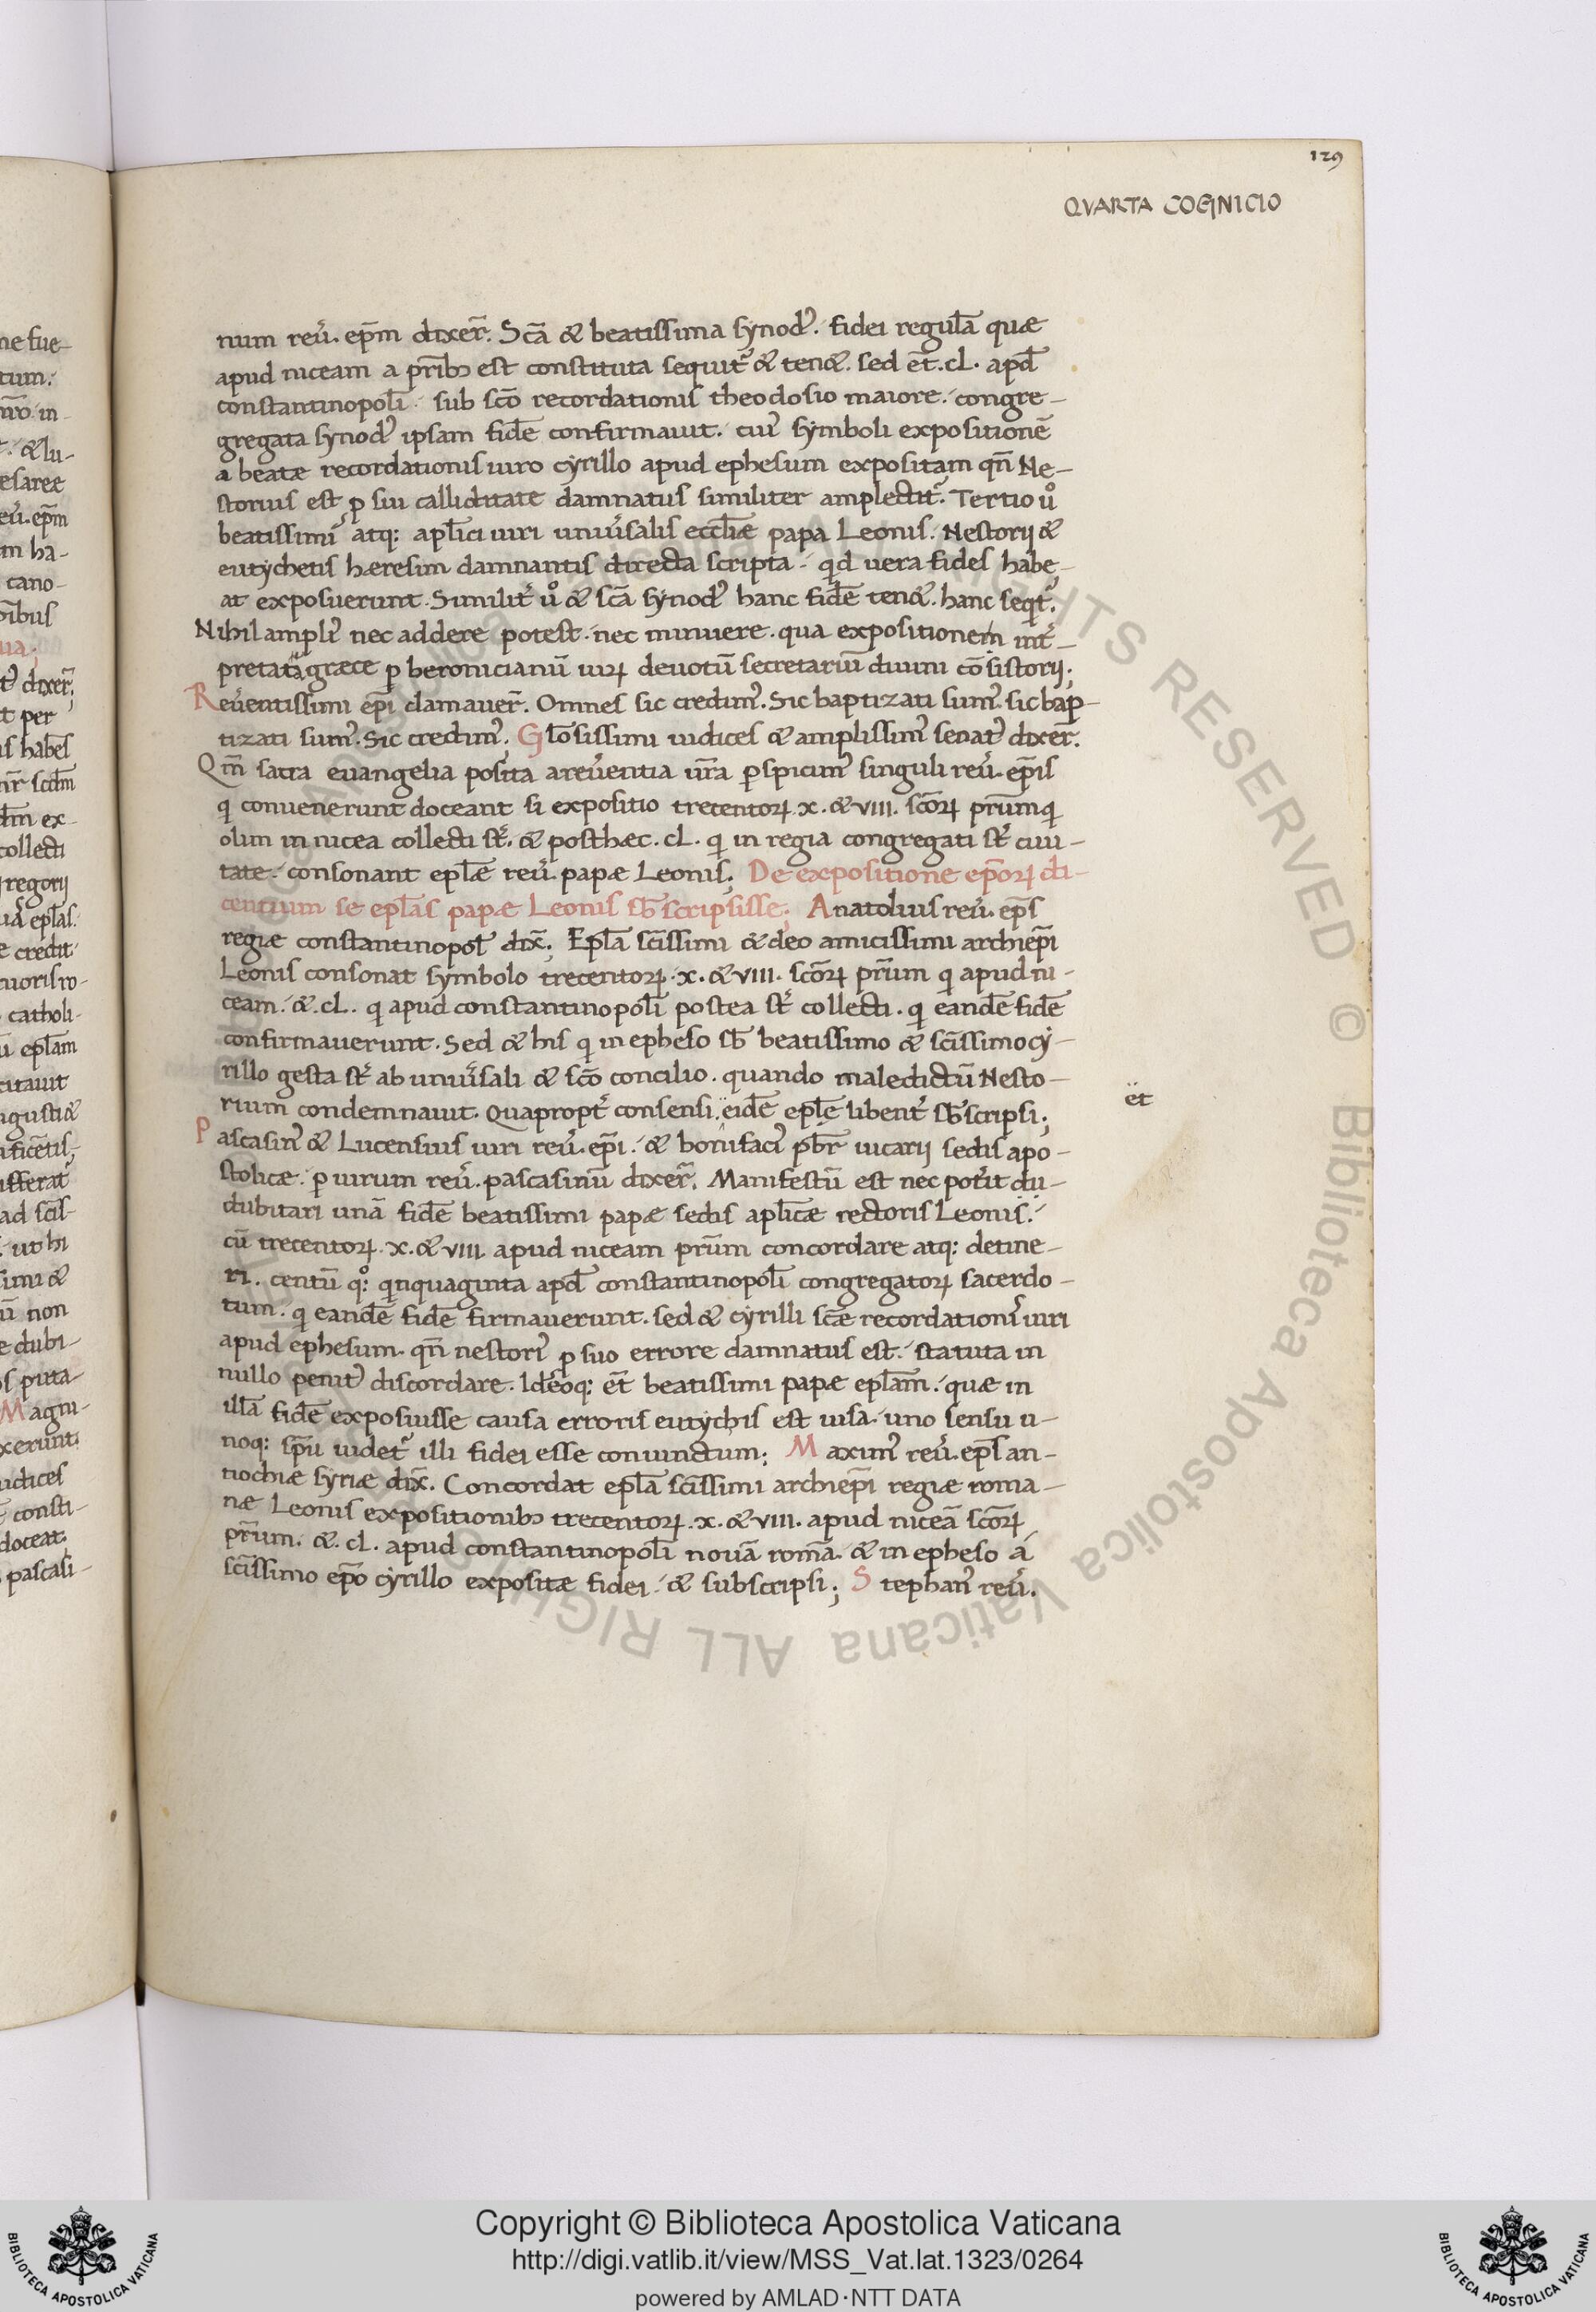 129
QVARTA COGNICIO
num reu̅. ep̅m dixer̅. Sc̅a & beatissima synod᾽. fidei regula̅ quæ
apud niceam a prib; est constituta sequit᾽ & ten&. sed et̅. cl. apd̅
constantinopoli̅ sub sc̅o recordationis theodosio maiore. congre-
gregata synod᾽ ipsam fide̅ confirmauit. cui᾽ symboli expositione̅
a beatæ recordationis uiro cyrillo apud ephesum expositam qn̅ Ne-
storius est p sui calliditate damnatus similiter amplectit᾽. Tertio uº
beatissimi atq: apl̅ici uiri uniu̅salis eccl̅iæ papa Leonis. Nestorij &
eutychetis hæresim damnantis directa scripta. qd uera fides habe-
at exposuerunt. Similit᾽ uº & sc̅a synod᾽ hanc fide̅ ten&. hanc seqt᾽.
Nihil ampli᾽ nec addere potest. nec minuere. qua expositionem int᾽-
pretata̅ græce p beronicianu̅ uirꝝ deuotu̅ secretariu̅ diuini co̅sistorij;
Reuentissimi ep̅i clamauer̅. Omnes sic credim᾽. Sic baptizati sum᾽. sic bap-
tizati sum᾽. Sic credim᾽. Glo̅sissimi iudices & amplissim᾽ senat᾽ dixer̅.
Qm̅ sacra euangelia posita a reu̅entia ur̅a pspicim᾽ singuli reu̅. ep̅is
q conuenerunt doceant si expositio trecentorꝝ. x. & VIII. sc̅orꝝ pr̅um q
olim in nicea collecti st̅. & posthæc. cl. q in regia congregati st̅ ciui-
tate. consonant epl̅æ reu̅. papæ Leonis; De expositione ep̅orꝝ di-
centium se epl̅as papæ Leonis sb̅scripsisse; Anatolius reu̅. ep̅s
regiæ constantinopol̅ dix̅; Epl̅a sc̅issimi & deo amicissimi archiep̅i
Leonis consonat symbolo trecentorꝝ. x. & VIII. sc̅orꝝ pr̅um q apud ni-
ceam. &. cl. q apud constantinopoli̅ postea st̅ collecti. q eande̅ fide̅
confirmauerunt. Sed & his q in epheso sb̅ beatissimo & sc̅issimo cy-
rillo gesta st̅ ab uniu̅sali & sc̅o concilio. quando maledictu̅ Nesto-
rium condemnauit. Quapropt᾽ consensi eide̅ epl̅ę libent᾽ sb̅scripsi;
ët
Pascasin᾽ & Lucensius uiri reu̅. ep̅i. & bonifaci᾽ pb̅r uicarij sedis apo-
stolicæ. p uirum reu̅. pascasinu̅ dixer̅. Manifestu̅ est nec pot᾽it du-
dubitari una̅ fide̅ beatissimi papæ sedis apl̅icæ rectoris Leonis.
cu̅ trecentorꝝ. x. & VIII. apud niceam pr̅um concordare atq: detine-
ri. centu̅ qº: qnquaginta apd̅ constantinopoli̅ congregatorꝝ sacerdo-
tum. q eande̅ fide̅ firmauerunt. sed & cyrilli sc̅æ recordation᾽ uiri
apud ephesum. qn̅ nestori᾽ p suo errore damnatus est. statuta in
nullo penit᾽ discordare. Ideoq: et̅ beatissimi papæ epl̅am. quæ in
illa̅ fide̅ exposuisse causa erroris eutychis est uisa. uno sensu u-
noq: sp̅u uidet᾽ illi fidei esse coniunctum; Maxim᾽ reu̅. ep̅s an-
tiochiæ syriæ dix̅. Concordat epl̅a sc̅issimi archiep̅i regiæ roma-
næ Leonis expositionib; trecentorꝝ. x. & VIII. apud nicea̅ sc̅orꝝ
pr̅um. &. cl. apud constantinopoli̅ noua̅ roma̅. & in epheso á
sc̅issimo ep̅o cyrillo expositæ fidei. & subscripsi; Stephan᾽ reu̅.
Copyright © Biblioteca Apostolica Vaticana
http://digi.vatlib.it/view/MSS_Vat.lat.1323/0264
powered by AMLAD·NTT DATA
BIBLIOTECA APOSTOLICA VATICANA
BIBLIOTECA APOSTOLICA VATICANA